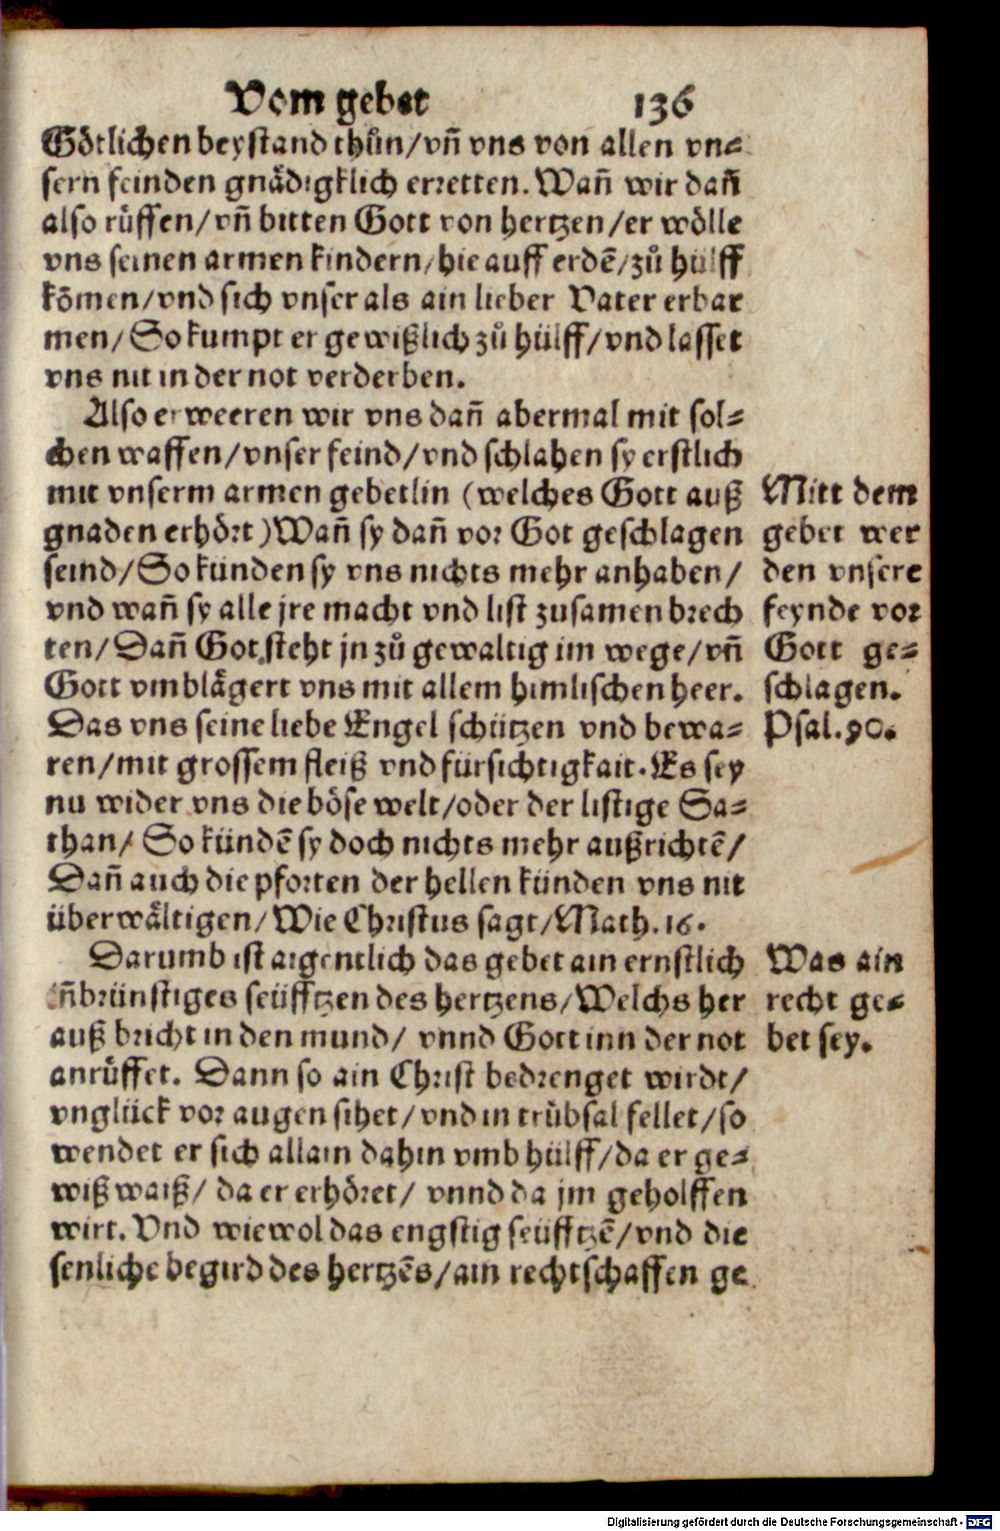 Vom gebet 136
Götlichen beystand thůn/vn̄ vns von allen vn⸗
sern feinden gnädigklich erretten. Wan̄ wir dan̄
also rüffen/vn̄ bitten Gott von hertzen/er wölle
vns seinen armen kindern/hie auff erdē/zů hülff
kōmen/vnd sich vnser als ain lieber Vater erbar
men/ So kumpt er gewißlich zů hülff/vnd lasset
vns nit in der not verderben.
Also erweeren wir vns dan̄ abermal mit sol⸗
chen waffen/vnser feind/vnd schlahen sy erstlich
mit vnserm armen gebetlin (welches Gott auß
gnaden erhört) Wan̄ sy dan̄ vor Got geschlagen
seind/So künden sy vns nichts mehr anhaben/
vnd wan̄ sy alle jre macht vnd list zusamen brech
ten/Dan̄ Got steht jn zů gewaltig im wege/vn̄
Gott vmblägert vns mit allem himlischen heer.
Das vns seine liebe Engel schützen vnd bewa⸗
ren/mit grossem fleiß vnd fürsichtigkait. Es sey
nu wider vns die böse welt/oder der listige Sa⸗
than/ So kündē sy doch nichts mehr außrichtē/
Dan̄ auch die pforten der hellen künden vns nit
überwältigen/Wie Christus sagt/Math. 16.
Darumb ist aigentlich das gebet ain ernstlich
in̄brünstiges seüfftzen des hertzens/Welchs her
auß bricht in den mund/ vnnd Gott inn der not
anrüffet. Dann so ain Christ bedrenget wirdt/
vnglück vor augen sihet/vnd in trübsal fellet/so
wendet er sich allain dahin vmb hülff/da er ge⸗
wiß waiß/ da er erhöret/ vnnd da jm geholffen
wirt. Vnd wiewol das engstig seüfftzē/vnd die
senliche begird des hertzēs/ain rechtschaffen ge
Mitt dem
gebet wer
den vnsere
feynde vor
Gott ge⸗
schlagen.
Psal. 90.
Was ain
recht ge⸗
bet sey.
Digitalisierung gefördert durch die Deutsche Forschungsgemeinschaft - DFG